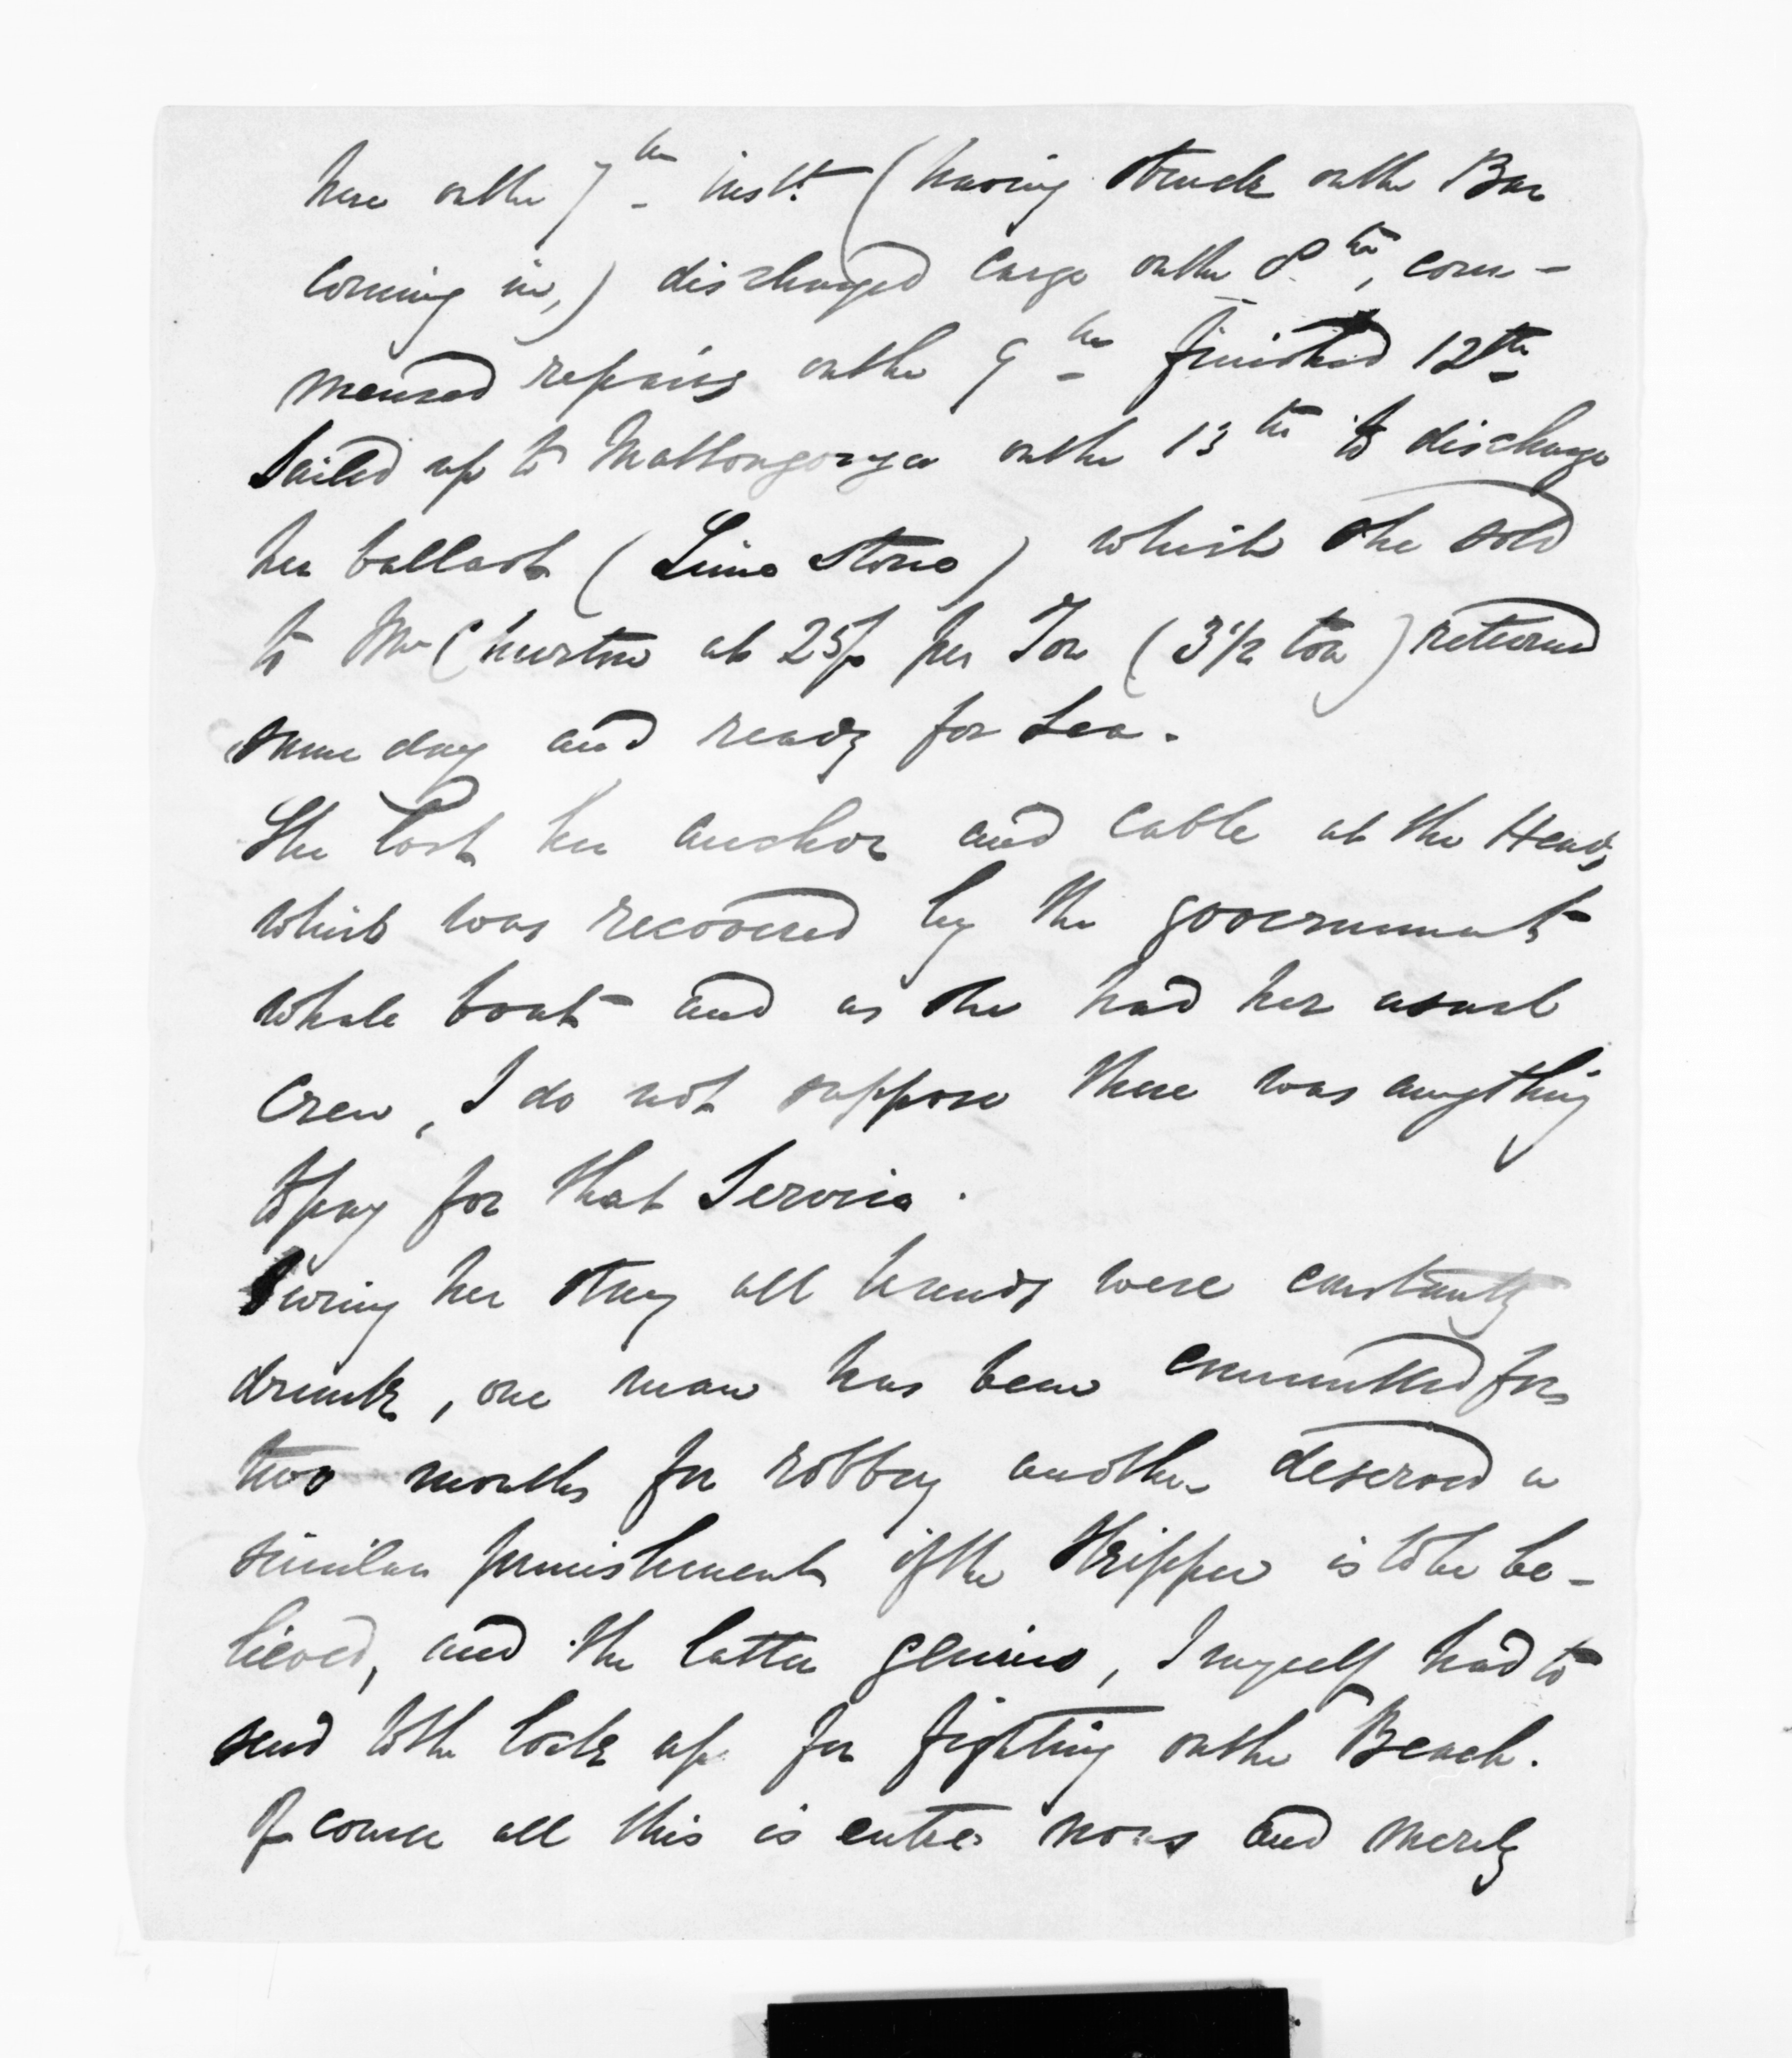 here on the 7th inst. (having struck on the Bar
coming in,) discharged cargo on the 8th, com-
menced repairs on the 9th finished 12th
Sailed up to Mattongonga on the 13th to discharge
her ballast (Lime Stone) which she sold
to Mr Churton at 25/- per Ton (3 1/2 ton) returned
same day and ready for Sea.
She lost her anchor and cable at the Heads
which was recovered by the government
whale boat and as she had her usual
crew, I do not suppose there was anything
to pay for that Service.
During her stay all hands were constantly
drunk, one man has been committed for
two months for robbery another deserved a
similar punishment if the Skipper is to be be-
lieved, and the latter genius, I myself had to
send to the lock up for fighting on the Beach.
Of course all this is entre nous and merely